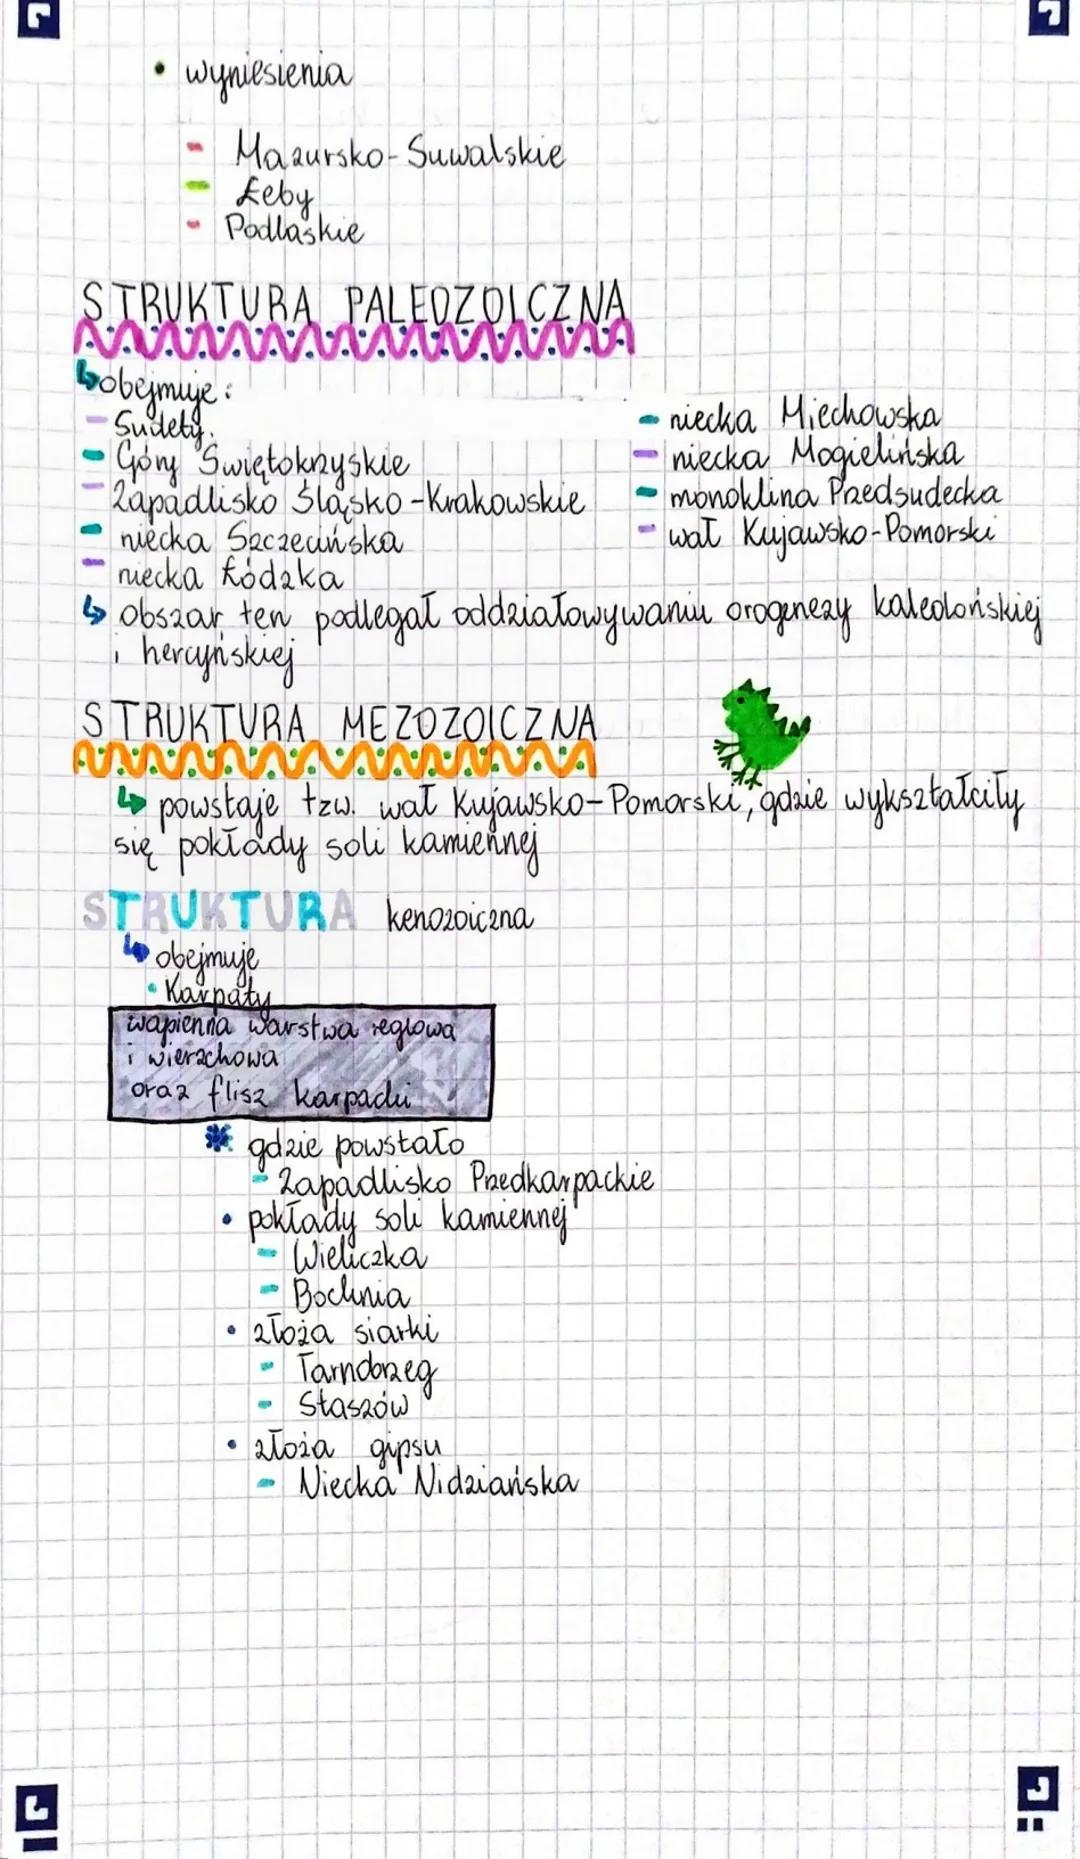 • wyniesienia
- Mazursko-Suwalskie
- Łeby
- Podlaskie
STRUKTURA PALEOZOICZNA
↳ obejmuje:
- Sudety.
- Góry Świętokrzyskie
- Zapadlisko Śląsko-Krakowskie
- niecka Szczecińska
- niecka Łódzka
- niecka Miechowska
- niecka Mogielińska
- monoklina Przedsudecka
- wał Kujawsko-Pomorski
↳ obszar ten podlegał oddziaływywaniu orogenezy kaledońskiej
i hercyńskiej
STRUKTURA MEZOZOICZNA
↳ powstaje tzw. wał Kujawsko-Pomorski, gdzie wykształciły
się pokłady soli kamiennej
STRUKTURA kenozoiczna
↳ obejmuje
• Karpaty
wapienna warstwa reglowa
i wierzchowa
oraz flisz karpacki
* gdzie powstało
- Zapadlisko Przedkarpackie
• pokłady soli kamiennej
- Wieliczka
- Bochnia
• złoża siarki
- Tarnobrzeg
- Staszów
• złoża gipsu
- Niecka Nidziańska